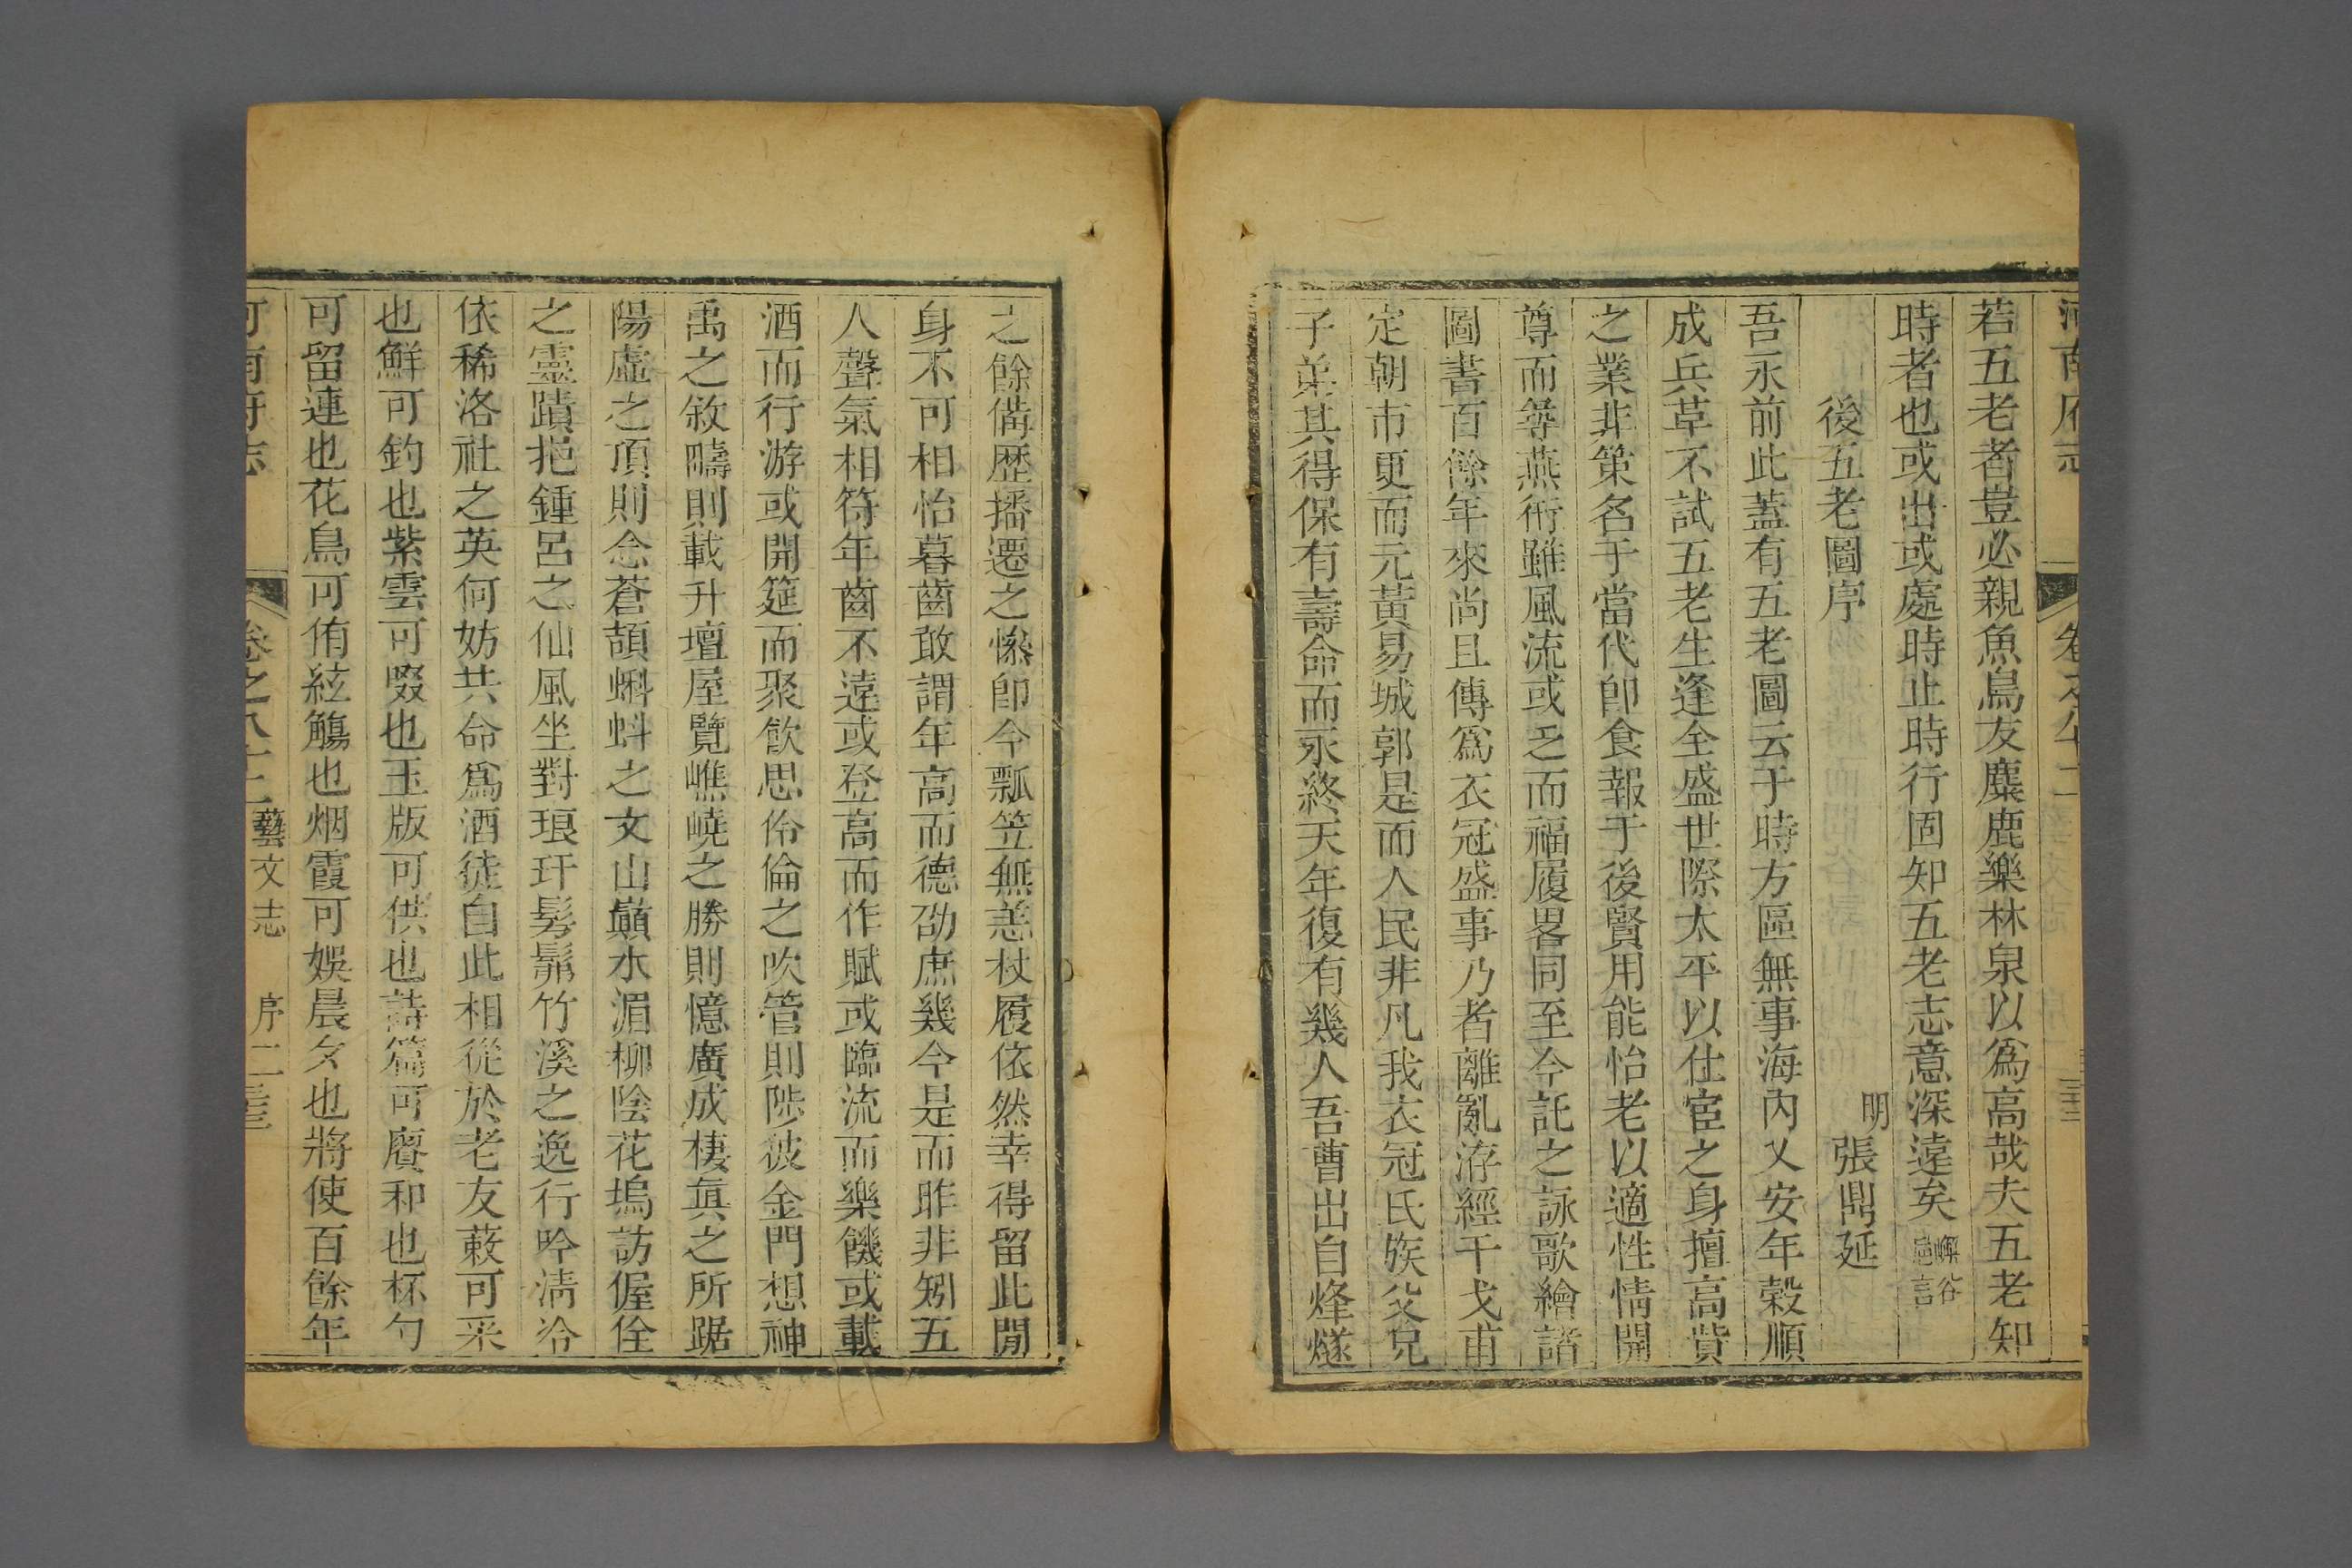 河南府志 卷之八十二
若五老者豈必親魚鳥友麋鹿樂林泉以爲高哉夫五老知
時者也或出或處時止時行固知五老志意深遠矣 嶰谷巵言
後五老圖序
明張鼎延
吾永前此蓋有五老圖云于時方區無事海內乂安年穀順
成兵革不試五老生逢全盛世際太平以仕宦之身擅高貲
之業非策名于當代卽食報于後賢用能怡老以適性情開
尊而等燕衎雖風流或乏而福履畧同至今託之詠歌繪諸
圖書百餘年來尚且傳爲衣冠盛事乃者離亂洊經干戈甫
定朝市更而元黃易城郭是而人民非凡我衣冠氏族父兄
子弟其得保有壽命而永終天年復有幾人吾曹出自烽燧
之餘備歷播遷之慘卽今瓢笠無恙杖履依然幸得留此閒
身不可相怡暮齒敢謂年高而德劭庶幾今是而昨非矧五
人聲氣相符年齒不遠或登高而作賦或臨流而樂饑或載
酒而行游或開筵而聚飲思伶倫之吹管則陟彼金門想神
禹之敘疇則載升壇屋覽嶕嶢之勝則憶廣成棲眞之所踞
陽虛之頂則念蒼頡蝌蚪之文山巔水湄柳陰花塢訪偓佺
之靈蹟挹鍾呂之仙風坐對琅玕髣髴竹溪之逸行吟淸泠
依稀洛社之英何妨共命爲酒徒自此相從於老友蔌可采
也鮮可釣也紫雲可啜也玉版可供也詩篇可賡和也杯勺
可留連也花鳥可侑絃觴也烟霞可娛晨夕也將使百餘年
河南府志 卷之八十二 藝文志 序二